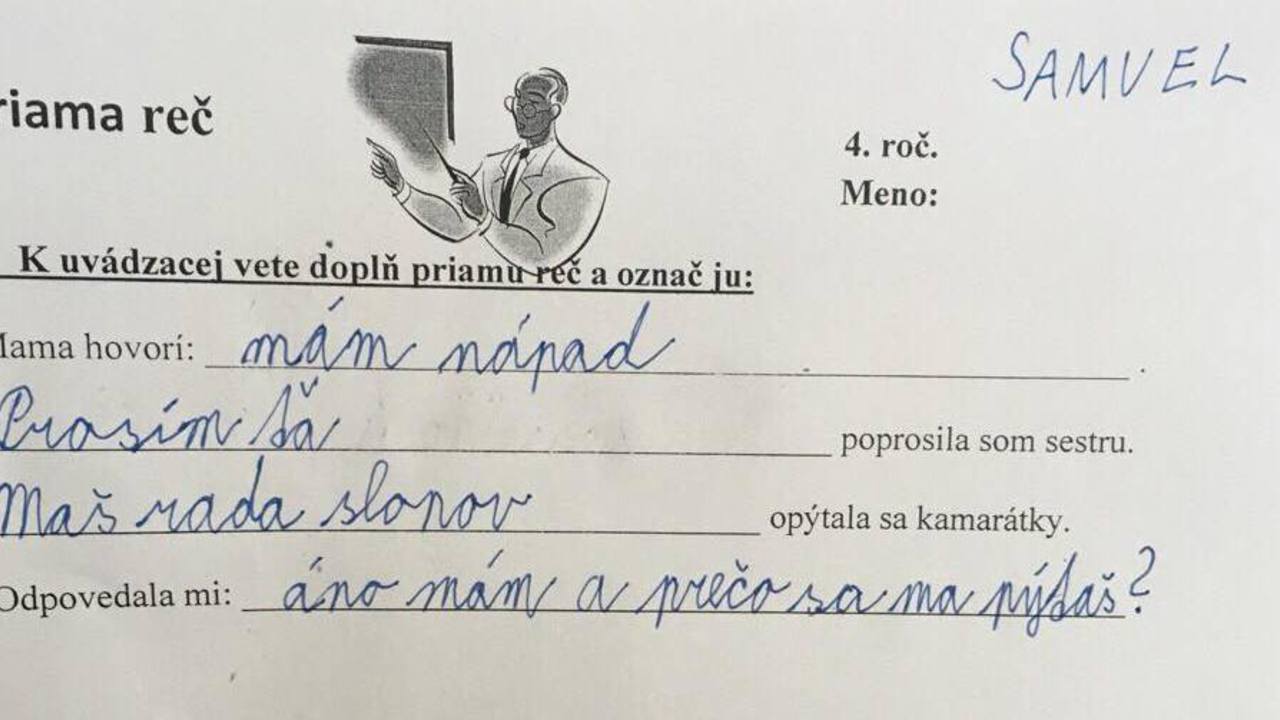 SAMUEL
riama reč
4. roč.
Meno:
K uvádzacej vete doplň priamu reč a označ ju:
Mama hovorí: mám nápad .
Prosím ťa poprosila som sestru.
Maš rada slonov opýtala sa kamarátky.
Odpovedala mi: áno mám a prečo sa ma pýtaš?